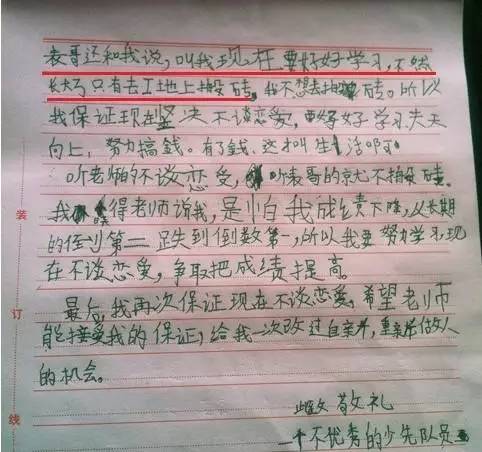 表哥还和我说，叫我现在要好好学习，不然
长大了只有去工地上搬砖。我不想去搬砖。所以
我保证现在坚决不谈恋爱，要好好学习天天
向上，努力搞钱。有了钱，这才叫生活啊
听老师的不谈恋爱，听表哥的就不搬砖。
我觉得老师说我，是怕我成绩下降，从长期
的倒数第二跌到倒数第一，所以我要努力学习，现
在不谈恋爱，争取把成绩提高。
最后，我再次保证现在不谈恋爱，希望老师
能接受我的保证，给我一次改过自新，重新做人
的机会。
此致 敬礼
一个不优秀的少先队员
装
订
线